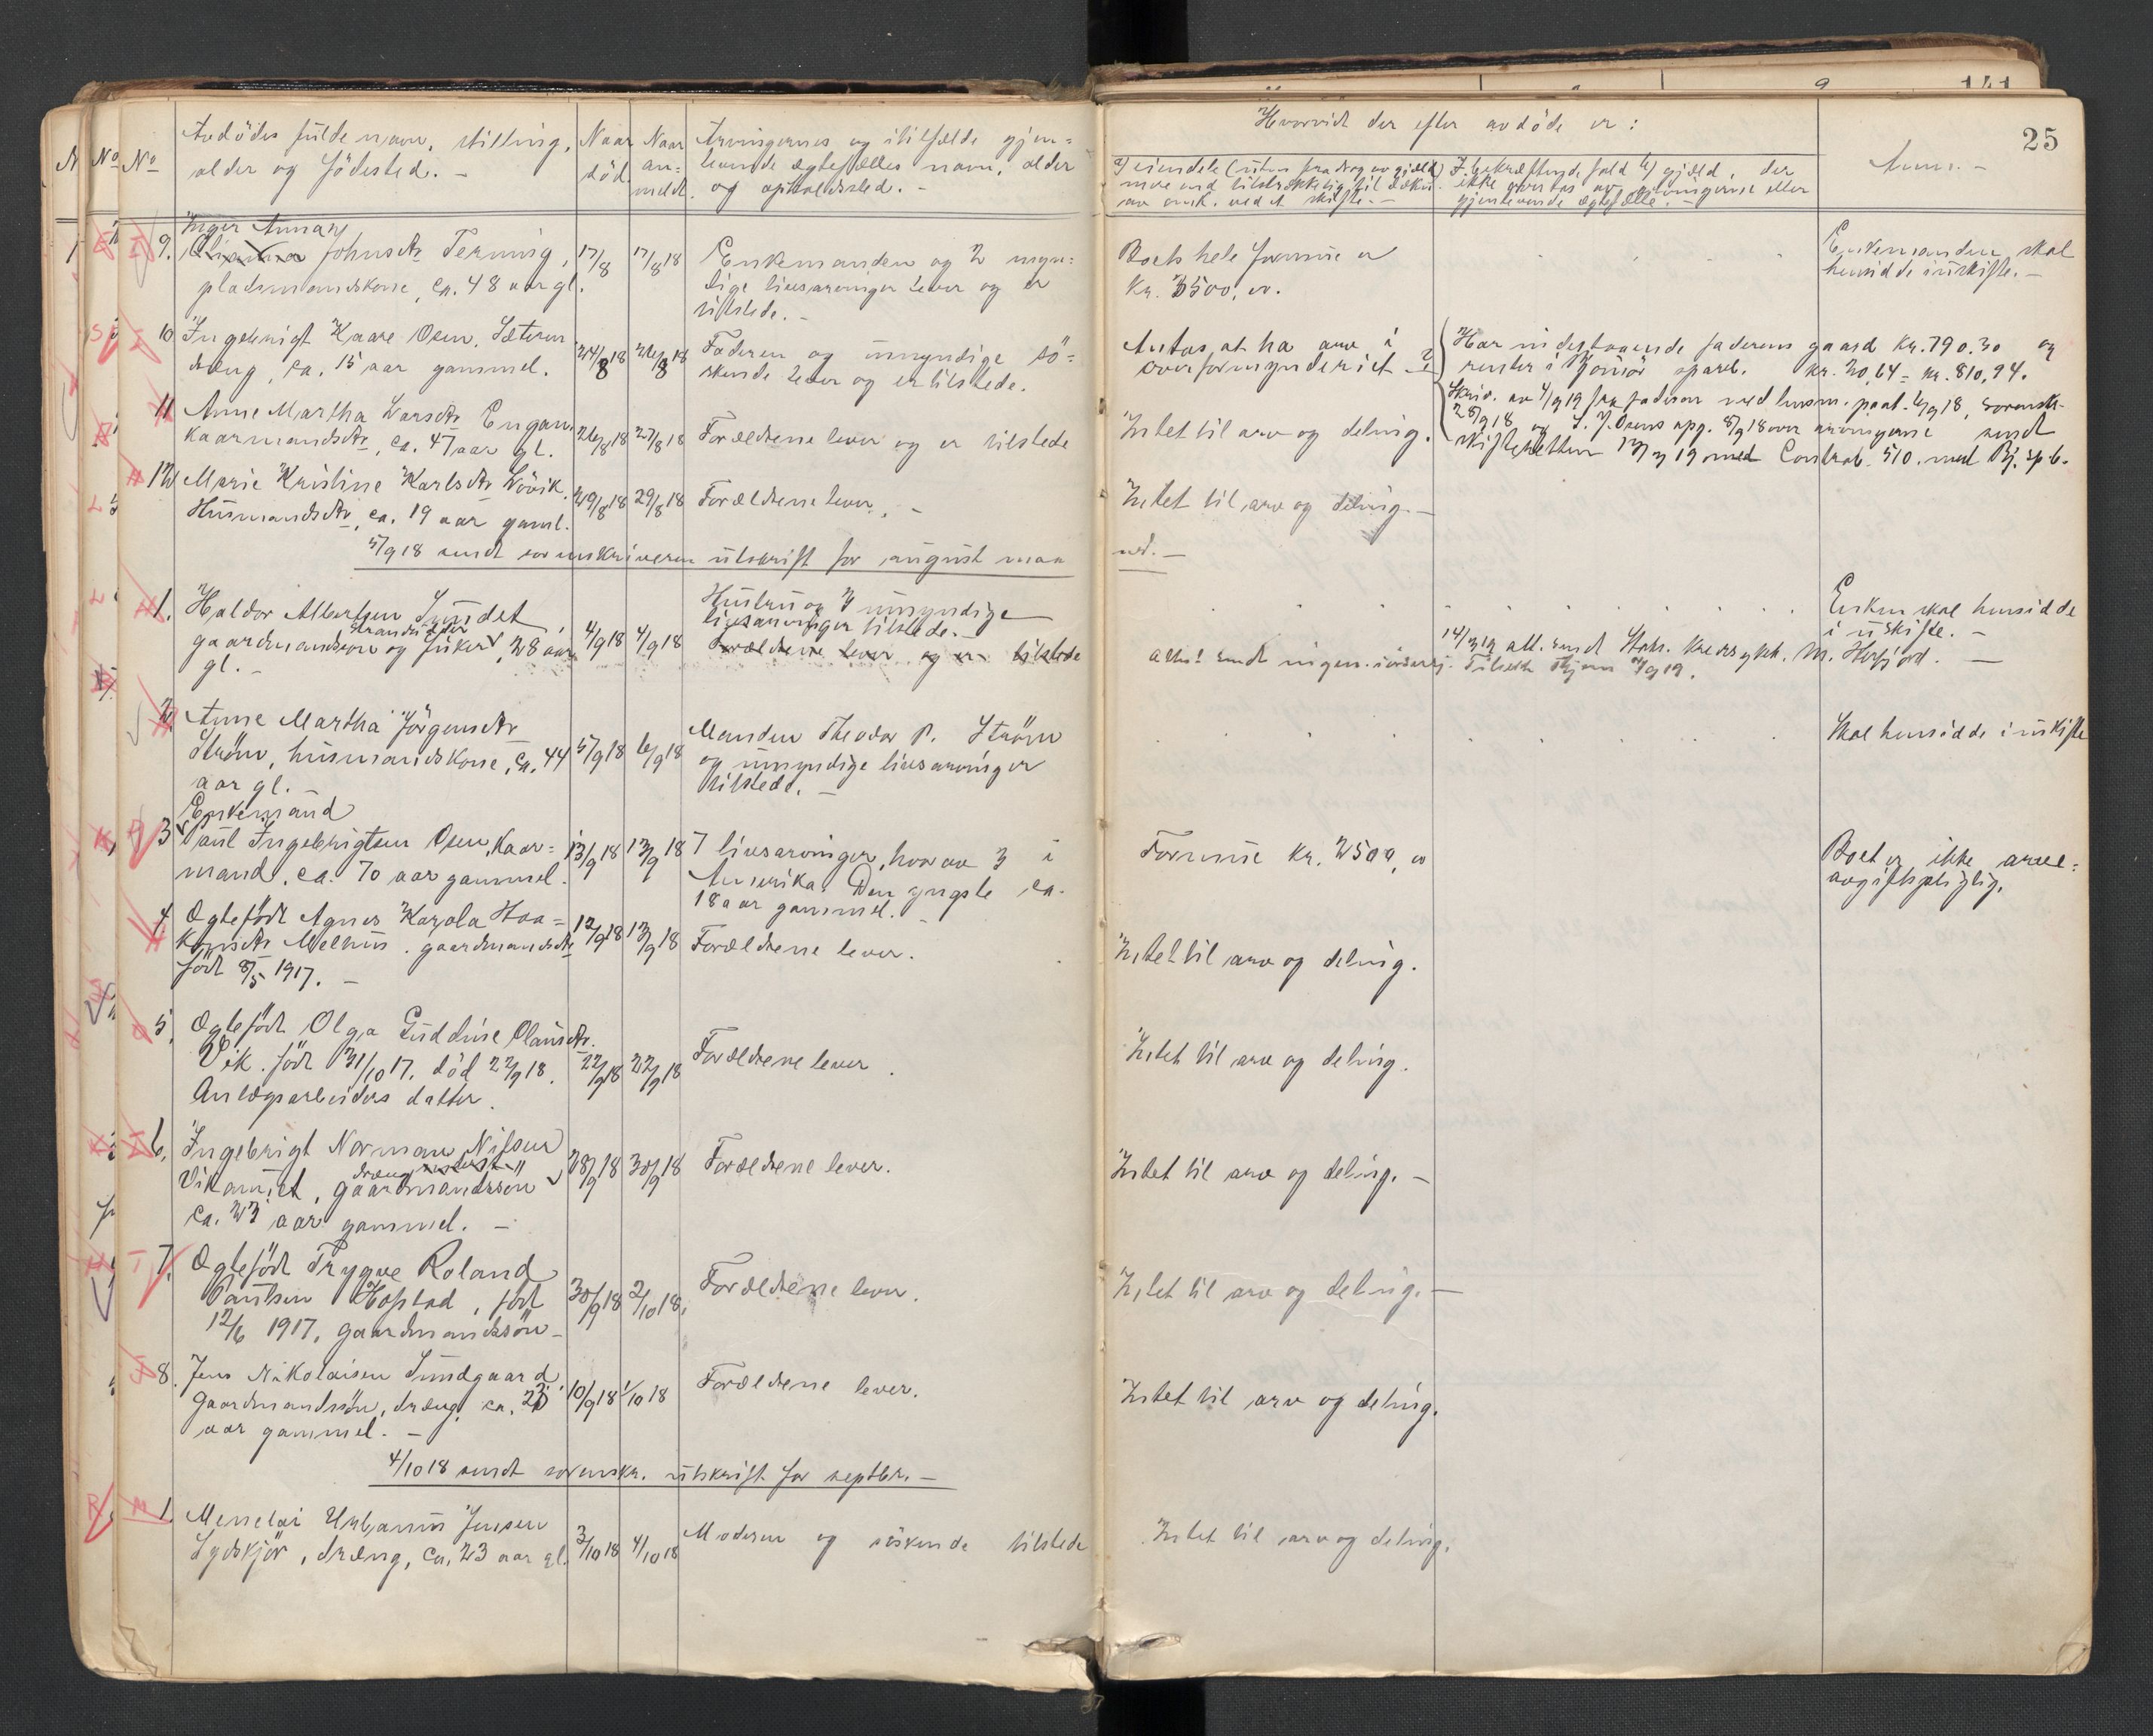 25
No
Avdödes fulde navn, stilling,
alder og födested. -
Naar
död.
Naar
an-
meldt.
Arvingernes og itilfælde gjen-
levende ægtefælles navn, alder
og opholdssted. -
Hvorvidt der efter avdöde er:
a) eiendele (uten fradrag av gjæld)
mere end tilstrækkelig til dækn.
av omk. ved et skifte. -
I bekræftende fald b) gjæld, der
ikke overtas av arvingerne eller
gjenlevende ægtefælle. -
Anm. -
Inger Anna
9. Johnsdtr Terning,
pladsmandskone, ca. 48 aar gl.
17/8
17/8 18
Enkemanden og 2 umyn-
dige livsarvinger lever og er
tilstede. -
Boets hele formue er
Kr. 3500,00.
Enkemanden skal
hensidde i uskifte. -
10 Ingebrigt Kaare Osen, Sæteren
dreng, ca. 15 aar gammel.
24/8 18
26/8 18
Faderen og umyndige sö-
skende lever og er tilstede.
Antas at ha arv i
overformynderiet - ?
Har indestaaende faderens gaard kr. 790.30 og
renter i Bjönör spareb. kr. 20,64 = kr. 810,94.
Skriv. av 4/9 19 fra faderen med lensm. paat. 6/9 18, sorensk.
28/9 18 og S. J. Osens opg. 8/9 18 over arvingerne sendt
skifteretten 13/3 19 med Contrab. 510. med Bj. sp.b.
11 Anne Martha Larsdtr Engan,
Kaarmandsdtr, ca. 47 aar gl.
26/8 18
27/8 18
Forældrene lever og er tilstede
Intet til arv og deling.
12 Marie Kristine Karlsdtr Lövik.
Husmandsdtr, ca. 19 aar gaml.
29/8 18
29/8 18
Forældrene lever. -
Intet til arv og deling. -
5/9 18 sendt sorenskriveren utskrift for august maa
ned. -
1. Haldor Albertsen Sundet,
strandsidder
gaardmandssön og fisker, 28 aar
gl. -
4/9 18
4/9 18
Hustru og 3 umyndige
livsarvinger tilstede. -
Forældrene lever og er tilstede
Enken skal hensidde
i uskifte. -
14/3 19 att. sendt Stokn. kredssykek. M. Herfjord. -
2. Anne Martha Jörgensdtr
Ström, husmandskone, ca. 44
aar gl. -
5/9 18
6/9 18
Manden Theodor P. Ström
og umyndige livsarvinger
tilstede. -
Skal hensidde i uskifte
Enkemand
3 Paul Ingebrigtsen Osen, Kaar-
mand, ca. 70 aar gammel.
13/9 18
13/9 18
7 livsarvinger, hvorav 3 i
Amerika. Den yngste ca.
18 aar gammel. -
Formue kr. 2500,00
Boet er ikke arve-
avgiftspligtig.
4. Egtefödt Agnes Karola Haa-
konsdtr Melhus. gaardmandsdtr
född 8/5 1917. -
12/9 18
13/9 18
Forældrene lever.
Intet til arv og deling.
5. Egtefödt Olga Guddine Olausdtr.
Vik. född 31/10 17. död 22/9 18.
Anlægsarbeiders datter.
22/9 18
22/9 18
Forældrene lever.
Intet til arv og deling.
6. Ingebrigt Norman Nilsen
dreng
Vikamilet, gaardmandssön
ca. 23 aar gammel. -
28/9 18
30/9 18
Forældrene lever.
Intet til arv og deling. -
7. Egtefödt Trygve Roland
Paulsen Hopstad, född
12/6 1917, gaardmandssön -
30/9 18
2/10 18.
Forældrene lever.
Intet til arv og deling. -
8. Jens Nikolaisen Sundgaard
gaardmandssön, dreng, ca.
aar gammel. -
10/9 18
1/10 18
Forældrene lever.
Intet til arv og deling.
4/10 18 sendt sorenskr. utskrift for septbr. -
1. Menelai Urbanus Jensen
Lydskjör, dreng, ca. 23 aar gl.
3/10 18
4/10 18
Moderen og söskende tilstede
Intet til arv og deling.